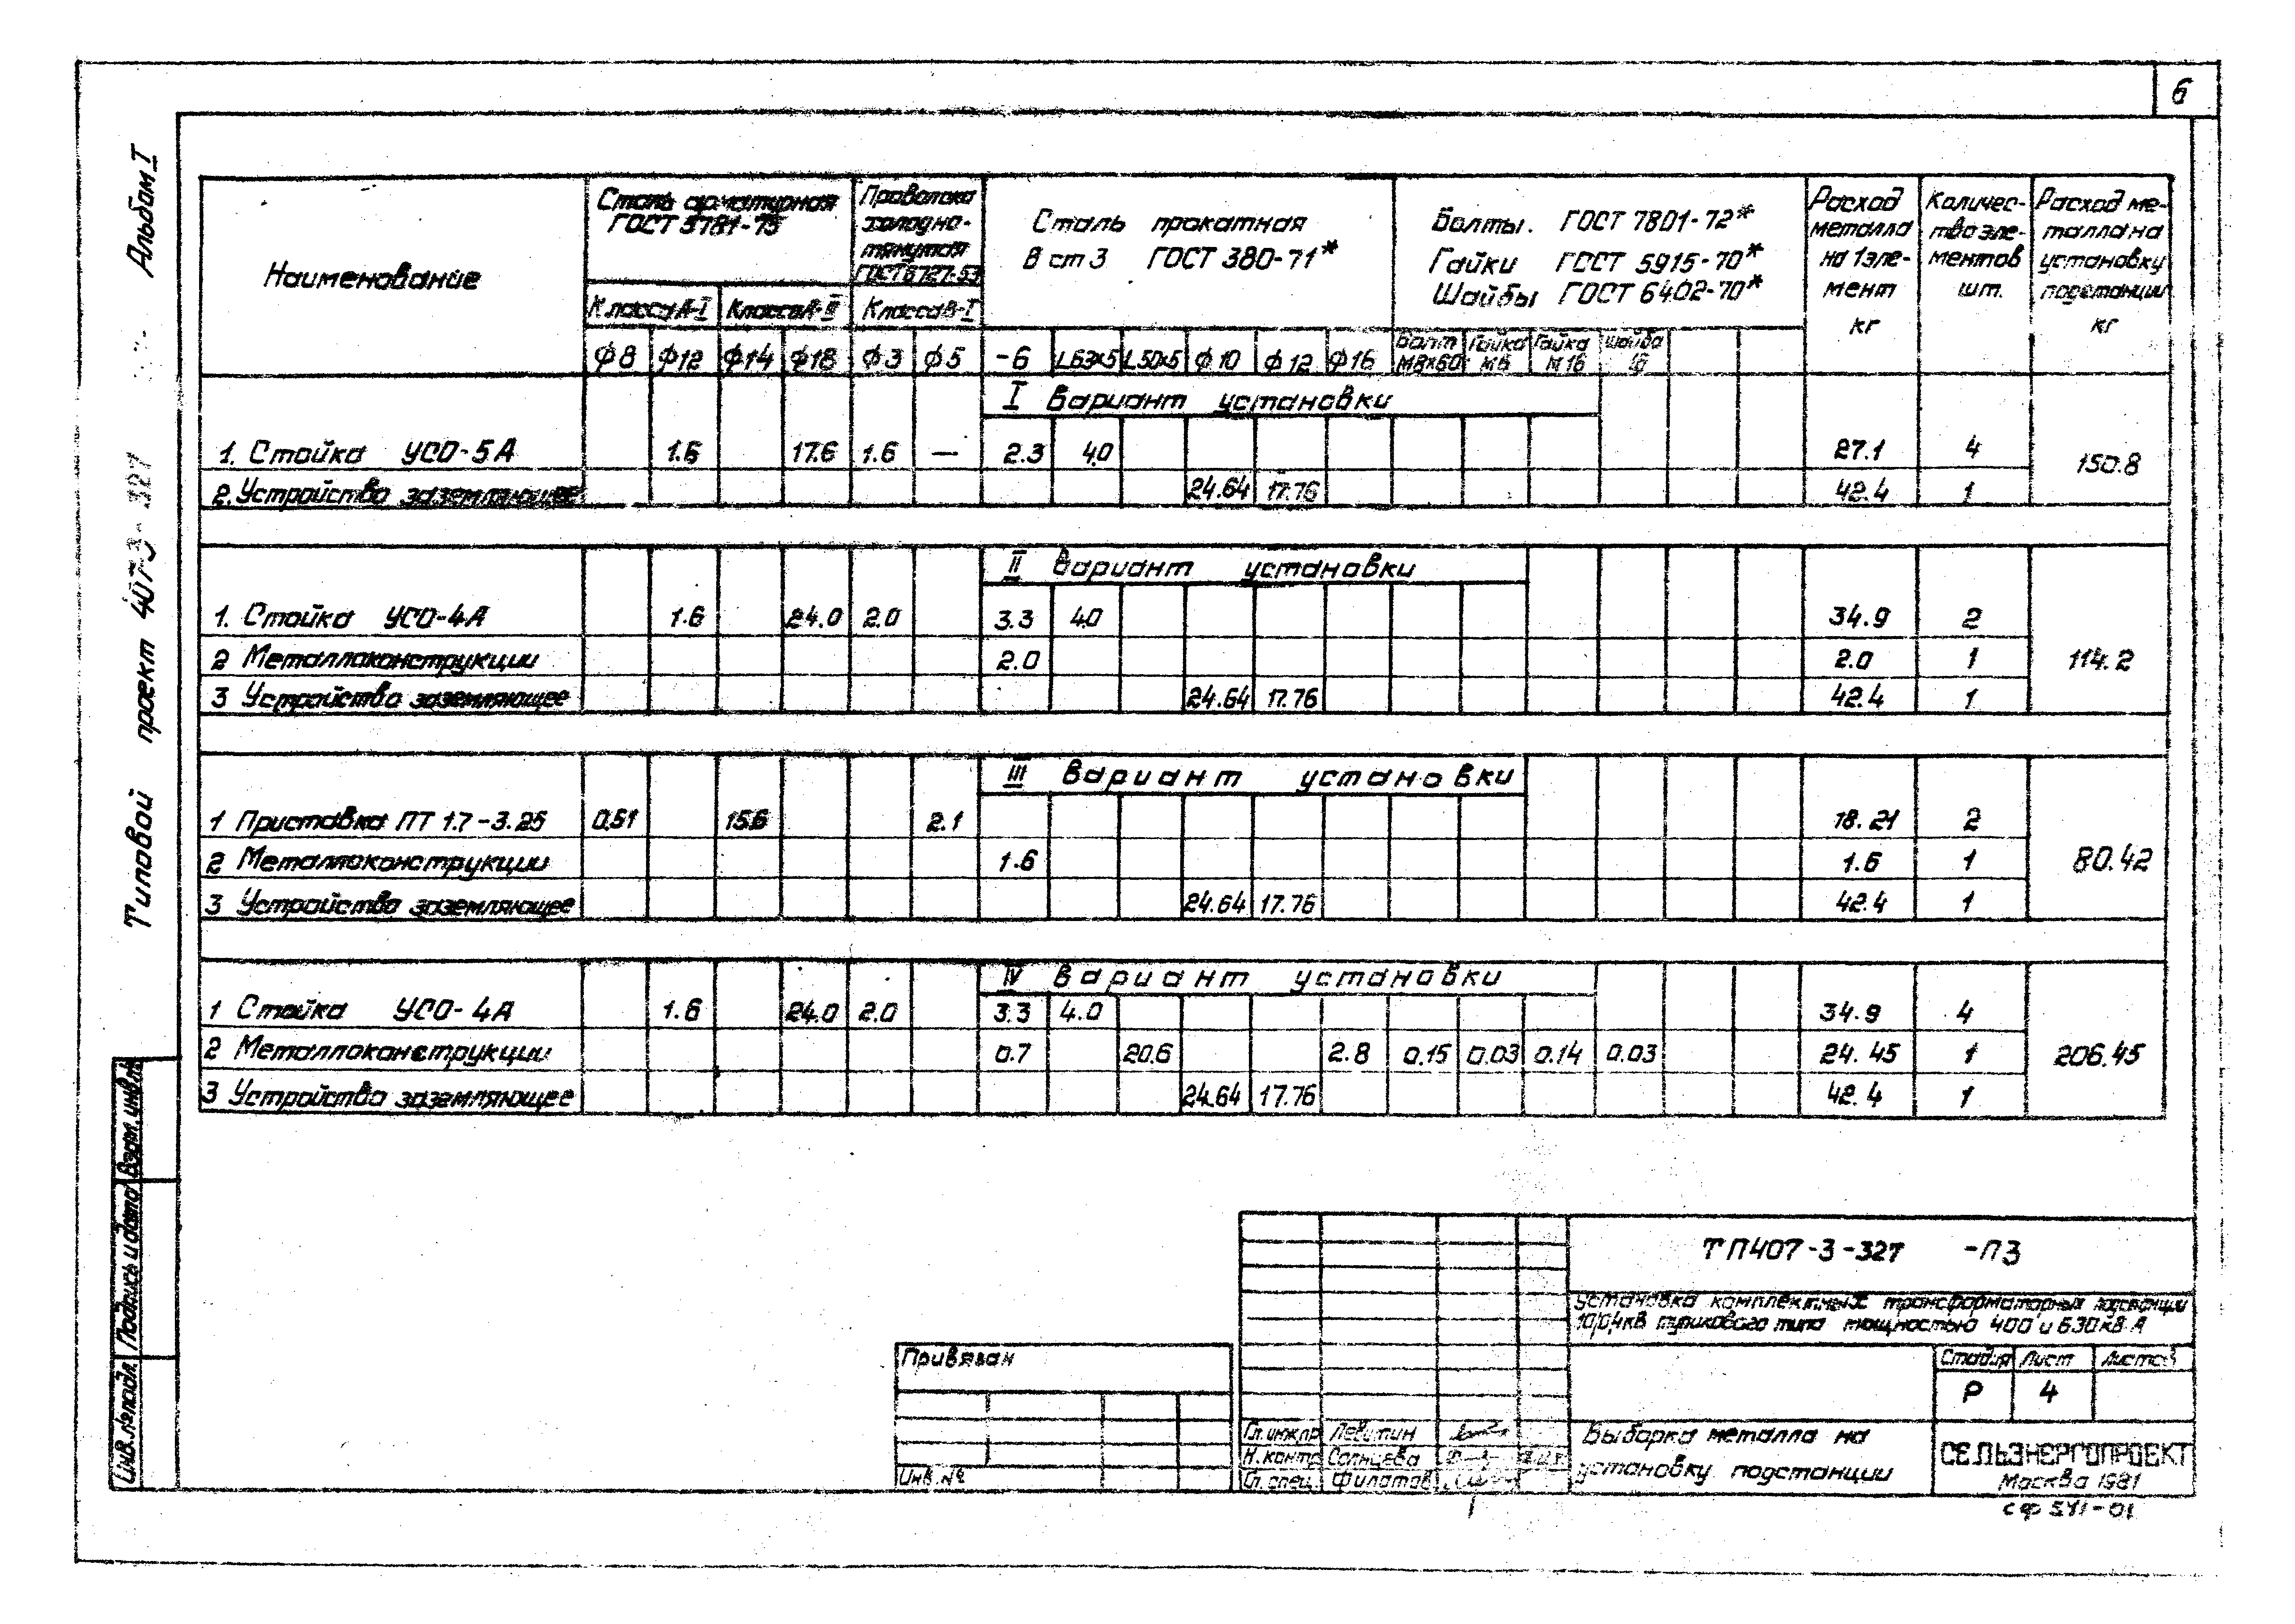 6
Альбом I
Типовой проект 407-3-327
Наименование
Сталь арматурная
ГОСТ 5781-75
Проволока
холодно-
тянутая
ГОСТ 6727-53
Сталь прокатная
В ст 3 ГОСТ 380-71*
Болты. ГОСТ 7801-72*
Гайки ГОСТ 5915-70*
Шайбы ГОСТ 6402-70*
Расход
металла
на 1 эле-
мент
кг
Количес-
тво эле-
ментов
шт.
Расход ме-
талла на
установку
подстанции
кг
Класса А-I Класса А-III Класса В-I
ф8 ф12 ф14 ф18 ф3 ф5 -6 L63x5 L50x5 ф10 ф12 ф16 Болт М8х60 Гайка М6 Гайка М16 Шайба 16
I вариант установки
1. Стойка УСО-5А 1.6 17.6 1.6 — 2.3 4.0 27.1 4 150.8
2. Устройство заземляющее 24.64 17.76 42.4 1
II вариант установки
1. Стойка УСО-4А 1.6 24.0 2.0 3.3 4.0 34.9 2
2 Металлоконструкции 2.0 2.0 1 114.2
3 Устройство заземляющее 24.64 17.76 42.4 1
III вариант установки
1 Приставка ПТ 1.7-3.25 0.51 15.6 2.1 18.21 2
2 Металлоконструкции 1.6 1.6 1 80.42
3 Устройство заземляющее 24.64 17.76 42.4 1
IV вариант установки
1 Стойка УСО-4А 1.6 24.0 2.0 3.3 4.0 34.9 4
2 Металлоконструкции 0.7 20.6 2.8 0.15 0.03 0.14 0.03 24.45 1 206.45
3 Устройство заземляющее 24.64 17.76 42.4 1
Взам. инв.№
Подпись и дата
Инв.№ подл.
ТП407-3-327 -ПЗ
Установка комплектных трансформаторных подстанций
10/0,4кВ тупикового типа мощностью 400 и 630 кВ А
Привязан
Инв.№
Стадия Лист Листов
Р 4
Гл.инж.пр Левитин
Н.контр Солнцева
Гл. спец. Филатов
Выборка металла на
установку подстанции
СЕЛЬЭНЕРГОПРОЕКТ
Москва 1981
сф 541-01